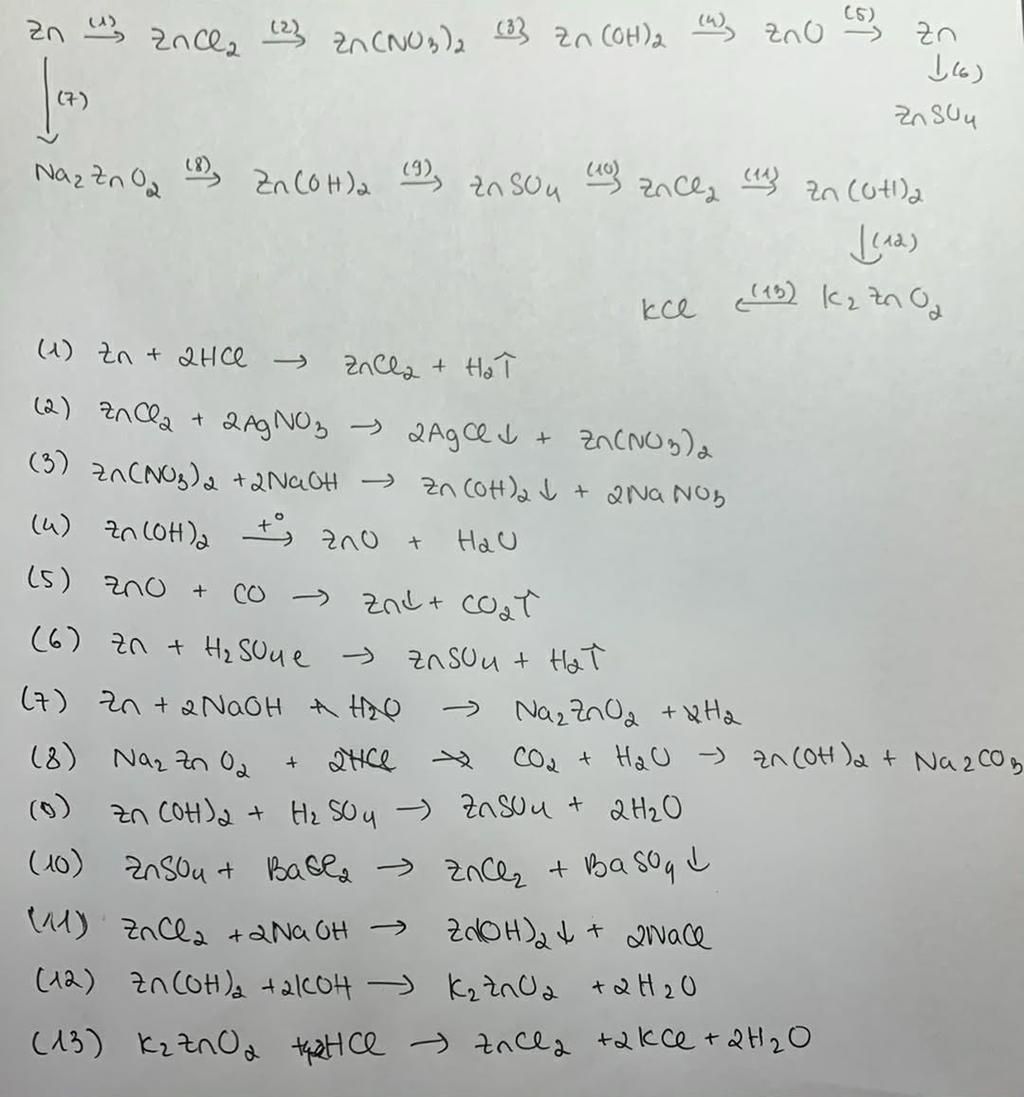 Zn (1)→ ZnCl2 (2)→ Zn(NO3)2 (3)→ Zn(OH)2 (4)→ ZnO (5)→ Zn
↓(7) ↓(6)
ZnSO4
Na2ZnO2 (8)→ Zn(OH)2 (9)→ ZnSO4 (10)→ ZnCl2 (11)→ Zn(OH)2
↓(12)
KCl ←(13) K2ZnO2
(1) Zn + 2HCl → ZnCl2 + H2↑
(2) ZnCl2 + 2AgNO3 → 2AgCl↓ + Zn(NO3)2
(3) Zn(NO3)2 + 2NaOH → Zn(OH)2↓ + 2NaNO3
(4) Zn(OH)2 t°→ ZnO + H2O
(5) ZnO + CO → Zn↓ + CO2↑
(6) Zn + H2SO4 l → ZnSO4 + H2↑
(7) Zn + 2NaOH → Na2ZnO2 + H2
(8) Na2ZnO2 + CO2 + H2O → Zn(OH)2 + Na2CO3
(9) Zn(OH)2 + H2SO4 → ZnSO4 + 2H2O
(10) ZnSO4 + BaCl2 → ZnCl2 + BaSO4↓
(11) ZnCl2 + 2NaOH → Zn(OH)2↓ + 2NaCl
(12) Zn(OH)2 + 2KOH → K2ZnO2 + 2H2O
(13) K2ZnO2 + HCl → ZnCl2 + 2KCl + 2H2O